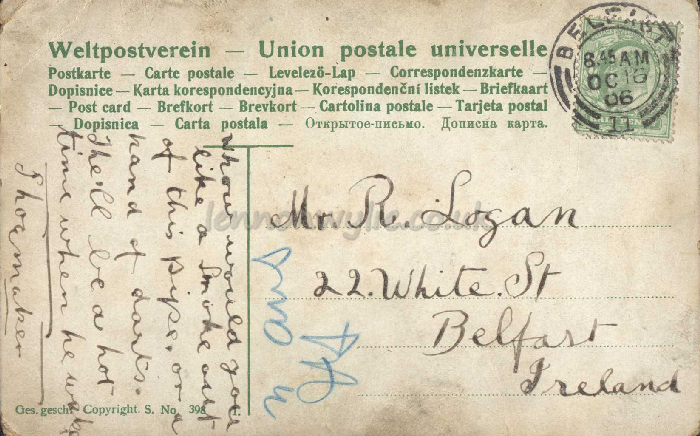 Weltpostverein — Union postale universelle
Postkarte — Carte postale — Levelező-Lap — Correspondenzkarte —
Dopisnice — Karta korespondencyjna — Korespondenční listek — Briefkaart
— Post card — Brefkort — Brevkort — Cartolina postale — Tarjeta postal
Dopisnica — Carta postala — Открытое-письмо. Дописна карта.
BELFAST
8.45 AM
OC 16
06
11
how would you
like a smoke out
of this pipe. or a
hand of darts.
The'll be a hot
time when he wakes
Shoemaker
Mr R. Logan
22. White. St
Belfast
Ireland
Ges. gesch. Copyright. S. No. 398